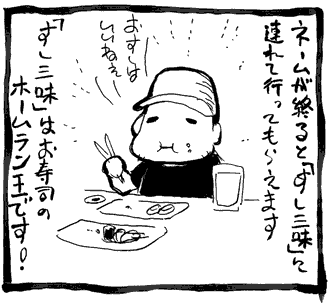 ネームが終ると「すし三味」に
連れて行ってもらえます
おすしは
いいねぇ〜
「すし三味」はお寿司の
ホームラン王です！